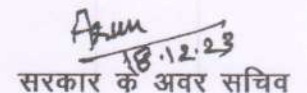 Arun
18.12.23
सरकार के अवर सचिव